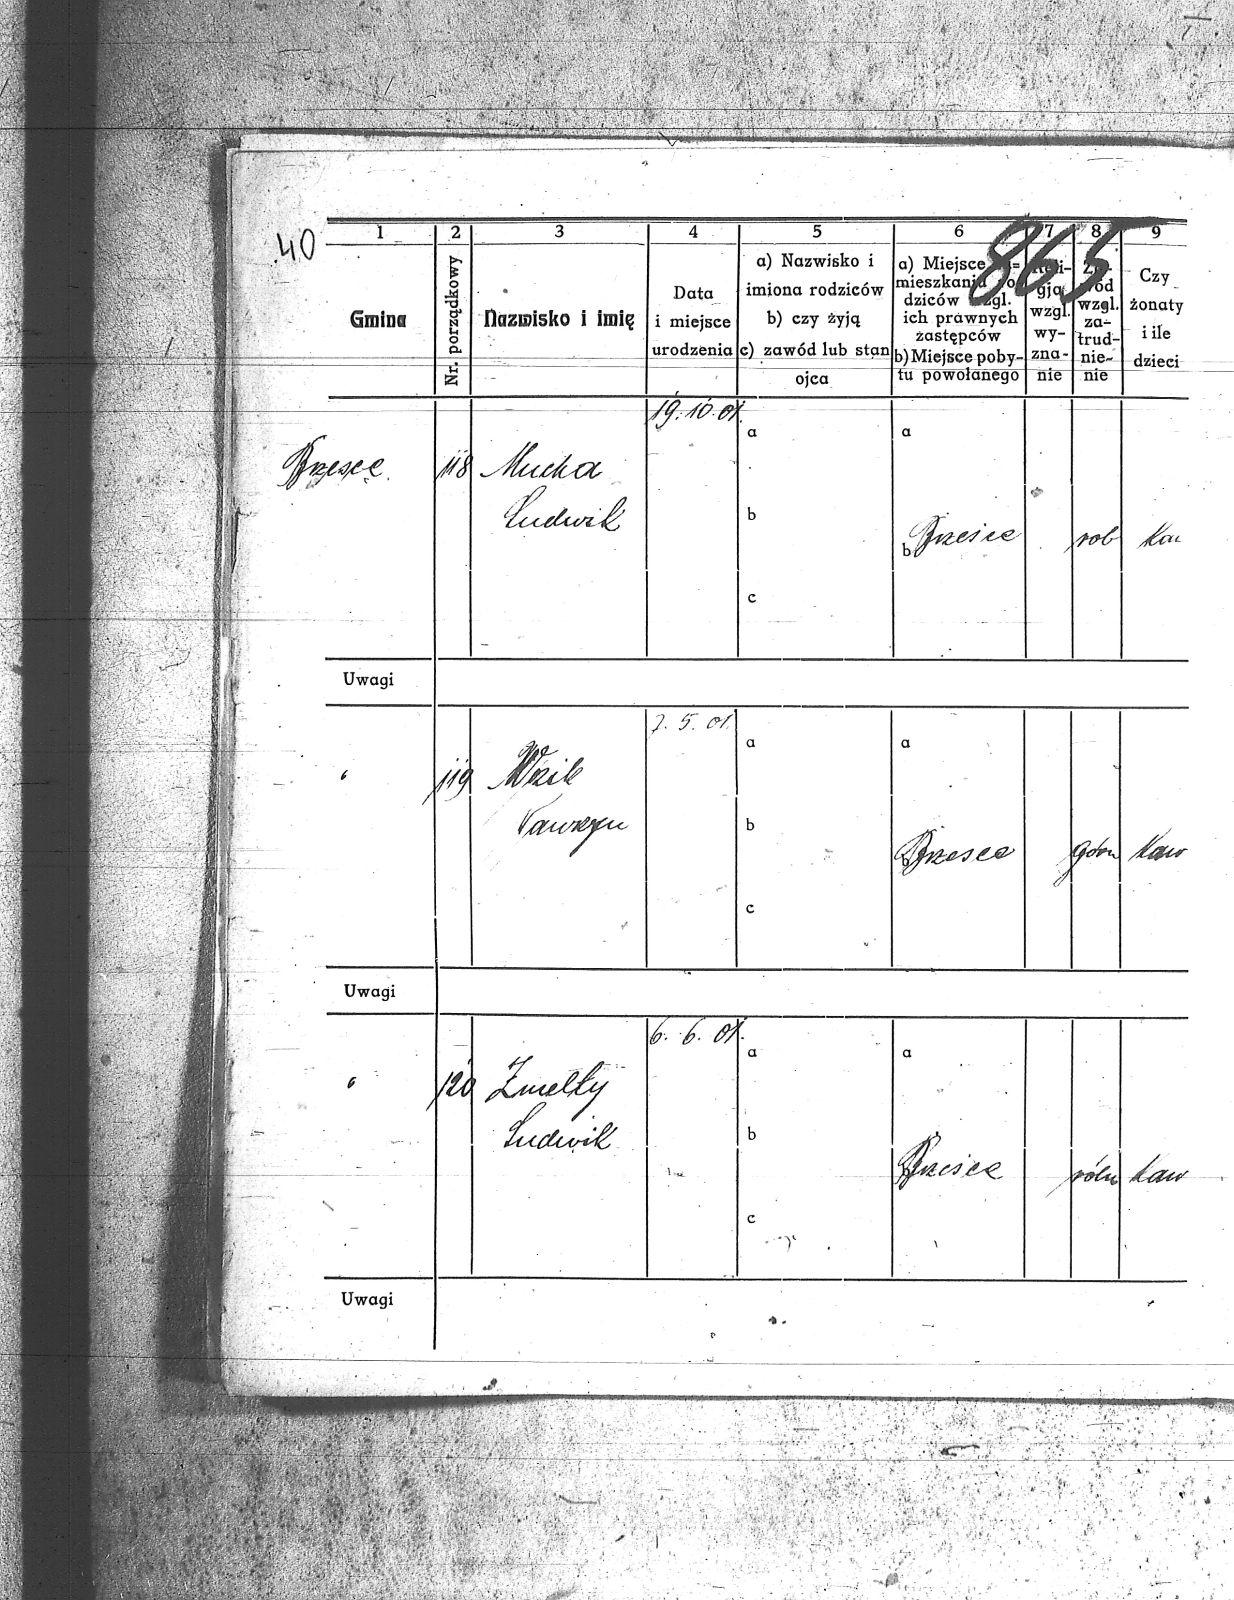 40
865
1 2 3 4 5 6 7 8 9
Gmina
Nr. porządkowy
Nazwisko i imię
Data
i miejsce
urodzenia
a) Nazwisko i
imiona rodziców
b) czy żyją
c) zawód lub stan
ojca
a) Miejsce
mieszkania
dziców wzgl.
ich prawnych
zastępców
b) Miejsce poby-
tu powołanego
gja
wzgl.
wy-
zna-
nie
wzgl.
za-
trud-
nie-
nie
Czy
żonaty
i ile
dzieci
19.10.01.
a a
Brzesce 118 Mucha
Ludwik b
b Brzesce rob Kaw
c
Uwagi
7. 5. 01.
a a
" 119
b
b Brzesce górn Kaw
c
Uwagi
6. 6. 01.
a a
" 120 Zmełty
Ludwik b
b Brzesce róln Kaw
c
Uwagi